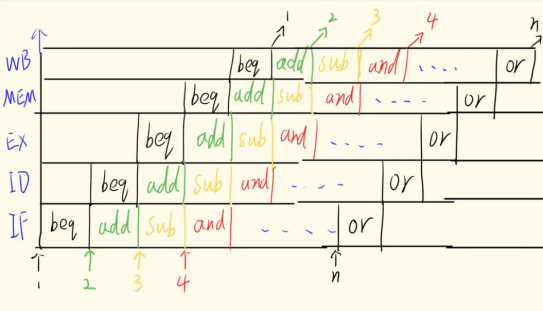 1 2 3 4 n
WB beq add sub and .... or
MEM beq add sub and .... or
EX beq add sub and ..... or
ID beq add sub and ..... or
IF beq add sub and ..... or
1 2 3 4 n